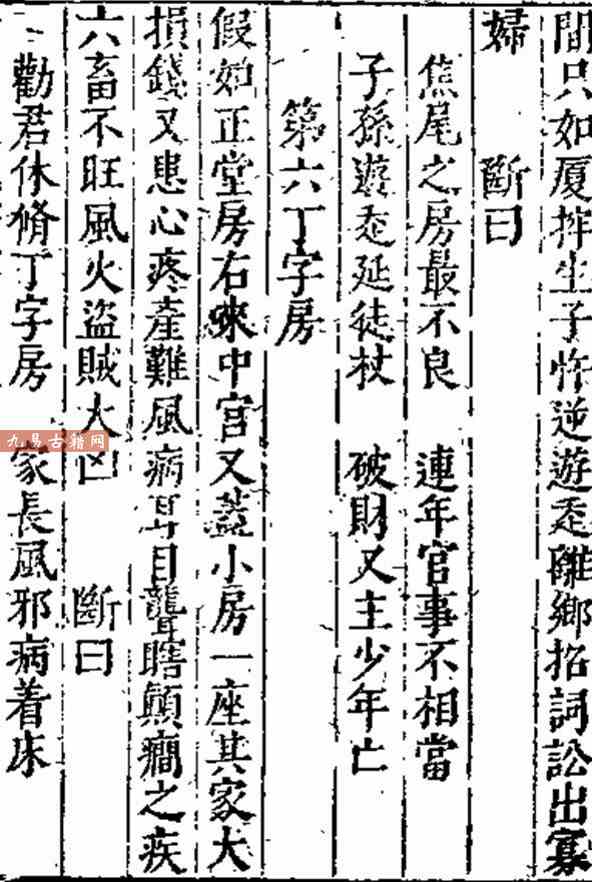 間只如厦捽生子忤逆遊走離鄉招詞訟出寡
婦　斷曰
焦尾之房最不良　連年官事不相當
子孫遊走延徒杖　破財又主少年亡
第六丁字房
假如正堂房右來中宮又蓋小房一座其家大
損錢又患心疼產難風病耳目聾瞎顛癇之疾
六畜不旺風火盜賊大凶　斷曰
勸君休脩丁字房　家長風邪病着床
九易古籍网